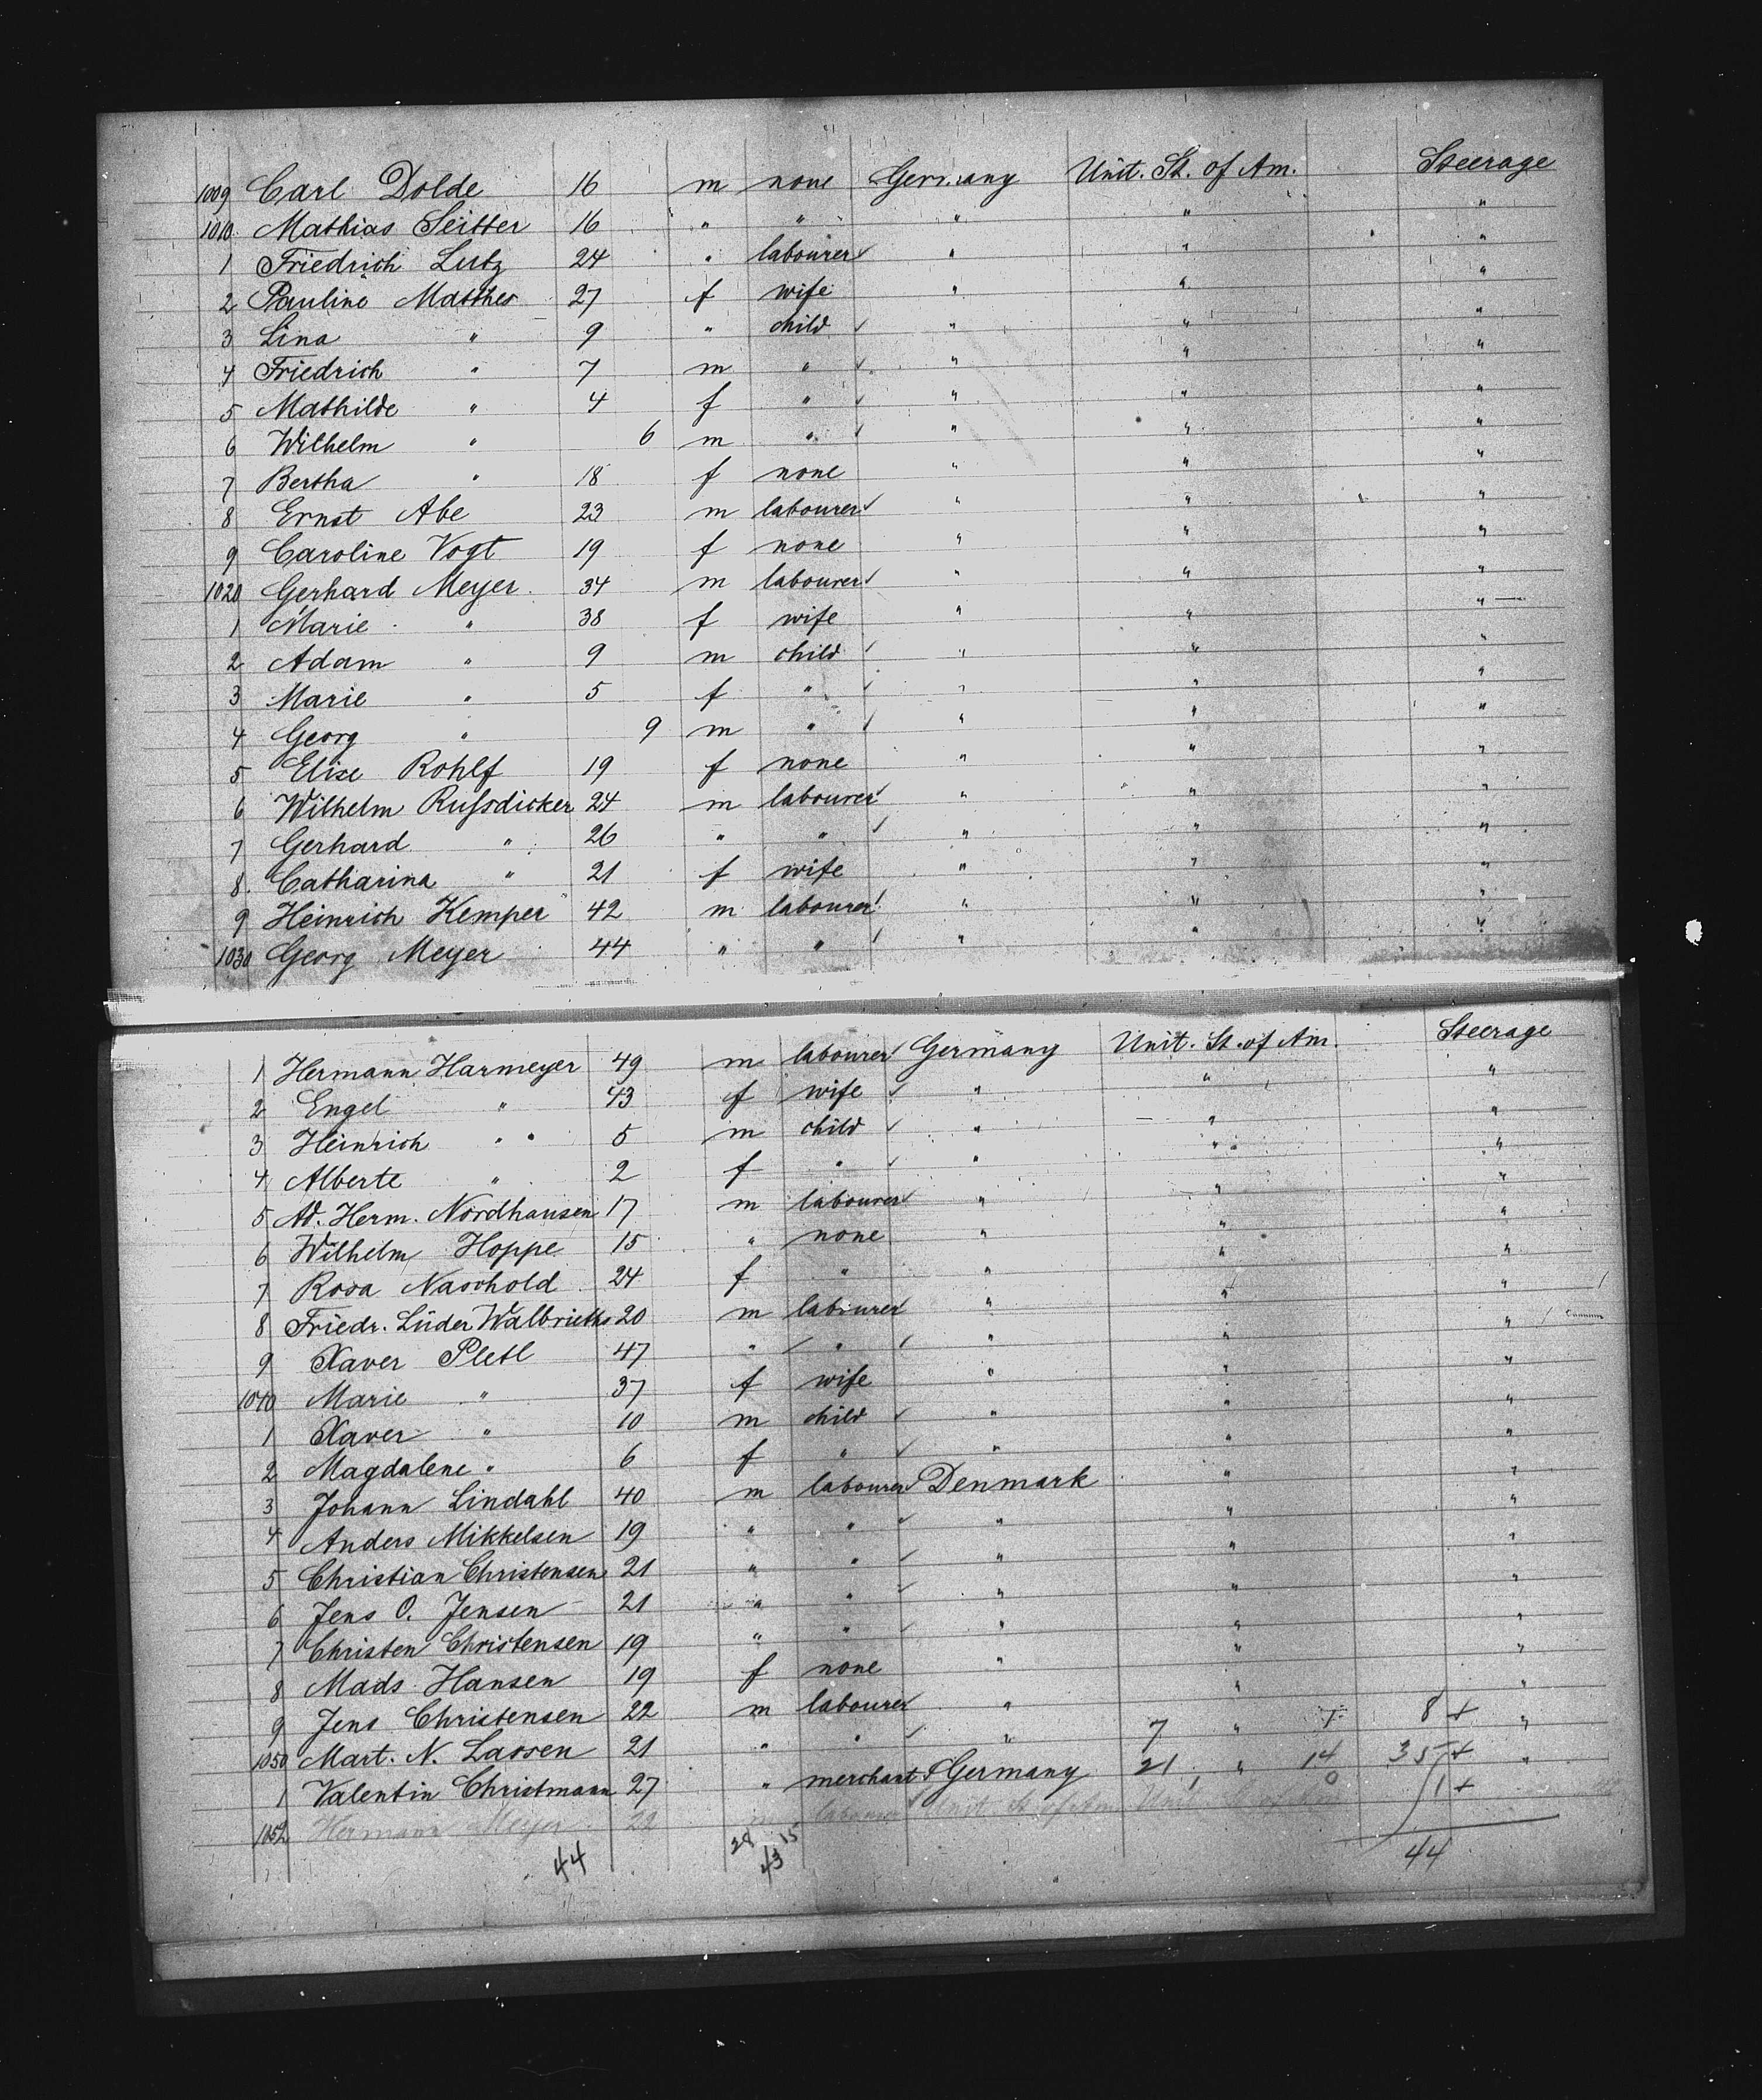 1009 Carl Dolde 16 m none Germany Unit. St. of Am. Steerage
1010 Mathias Seitter 16 " " " " "
1 Friedrich Lutz 24 " labourer " " "
2 Pauline Matthes 27 f wife " " "
3 Lina " 9 " child " " "
4 Friedrich " 7 m " " " "
5 Mathilde " 4 f " " " "
6 Wilhelm " 6 m " " " "
7 Bertha " 18 f none " " "
8 Ernst Abe 23 m labourer " " "
9 Caroline Vogt 19 f none " " "
1020 Gerhard Meyer 34 m labourer " " "
1 Marie " 38 f wife " " "
2 Adam " 9 m child " " "
3 Marie " 5 f " " " "
4 Georg " 9 m " " " "
5 Elise Rohlf 19 f none " " "
6 Wilhelm Russdicker 24 m labourer " " "
7 Gerhard " 26 " " " " "
8 Catharina " 21 f wife " " "
9 Heinrich Kemper 42 m labourer " " "
1030 Georg Meyer 44 " " " " "
1 Hermann Harmeyer 49 m labourer Germany Unit. St. of Am. Steerage
2 Engel " 43 f wife " " "
3 Heinrich " 5 m child " " "
4 Alberte " 2 f " " " "
5 Ad. Herm. Nordhausen 17 m labourer " " "
6 Wilhelm Hoppe 15 " none " " "
7 Rosa Naschold 24 f " " " "
8 Friedr. Lüder 20 m labourer " " "
9 Xaver Pletl 47 " " " " "
1040 Marie " 37 f wife " " "
1 Xaver " 10 m child " " "
2 Magdalene " 6 f " " " "
3 Johann Lindahl 40 m labourer Denmark " "
4 Anders Mikkelsen 19 " " " " "
5 Christian Christensen 21 " " " " "
6 Jens O. Jensen 21 " " " " "
7 Christen Christensen 19 " " " " "
8 Mads Hansen 19 f none " " "
9 Jens Christensen 22 m labourer " " "
1050 Mart. N. Lassen 21 " " " 7 " 1 8 + "
1 Valentin Christmann 27 " merchant Germany 21 " 14 35 + "
1052 Hermann Meyer 22 m labourer Unit. St. of Am. Unit. St. of Am. 0 1 +
44 28 15 44
43